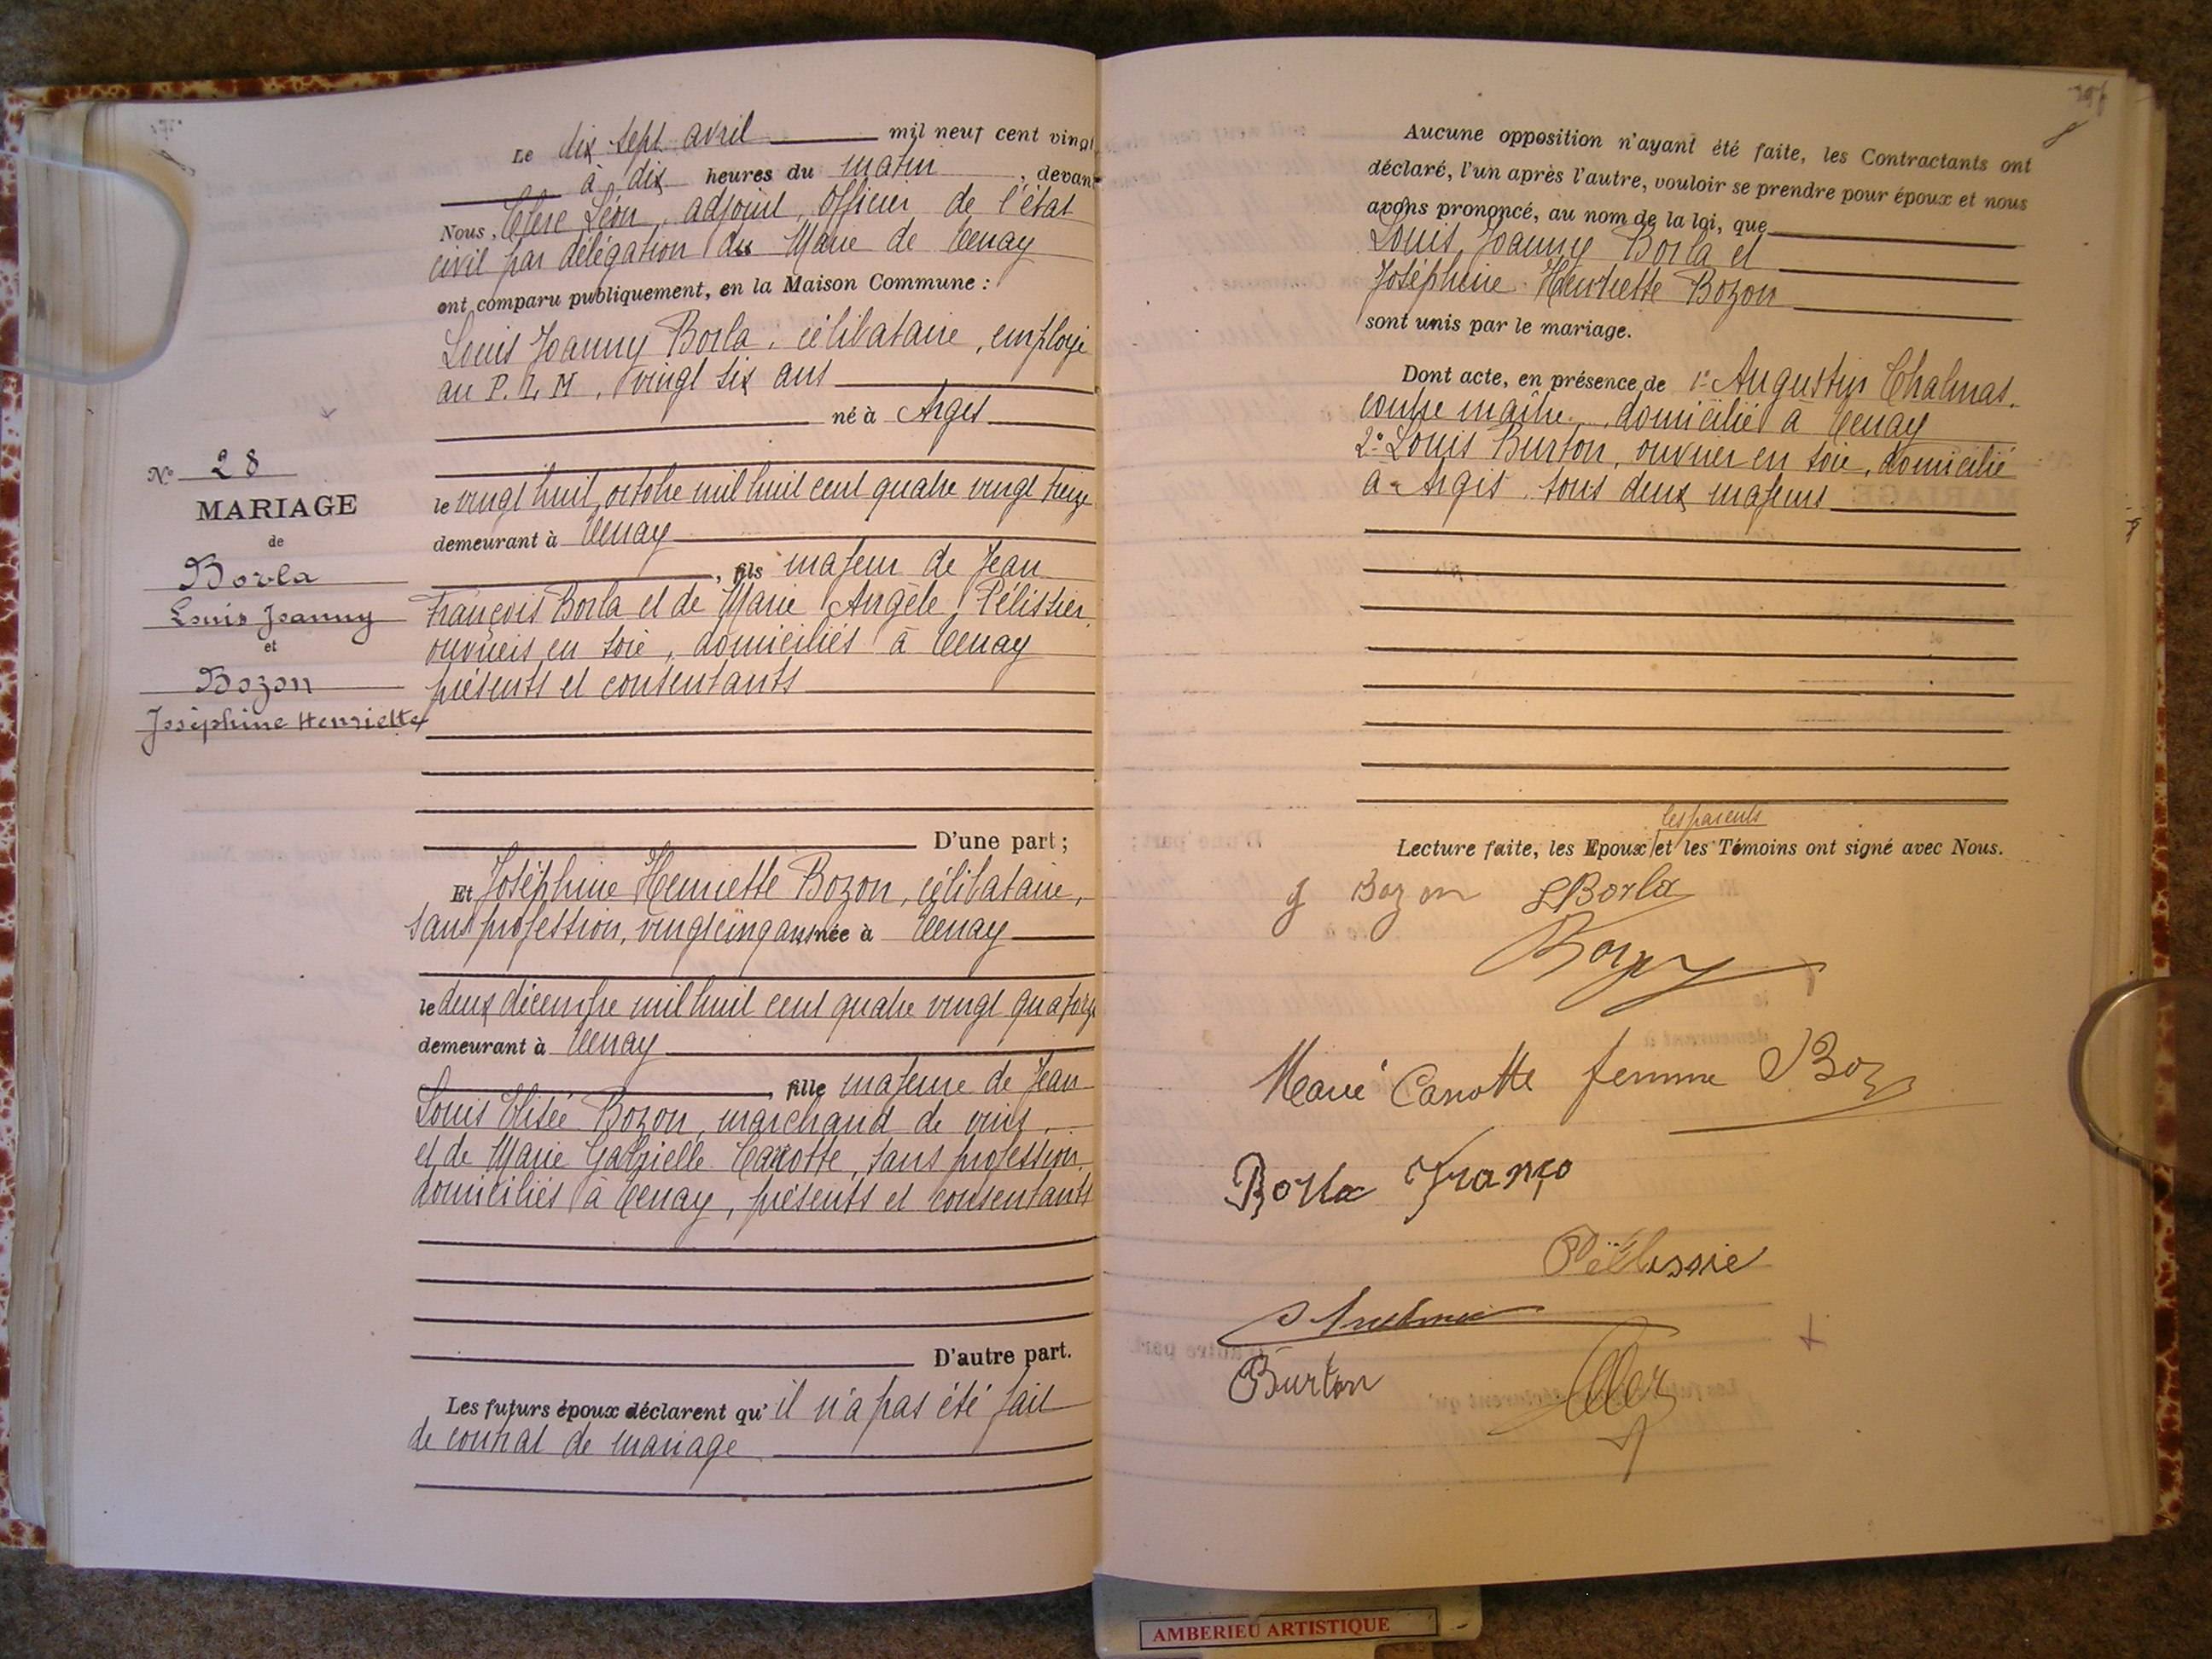 Le dix sept avril mil neuf cent vingt
à dix heures du matin, devant
Nous, Clerc Léon, adjoint, officier de l'état
civil par délégation du Maire de Tenay
ont comparu publiquement, en la Maison Commune :
Louis Joanny Borla, célibataire, employé
au P. L. M, vingt six ans
né à Argis
Nº 28
MARIAGE
de
Borla
Louis Joanny
et
Bozon
Joséphine Henriette
le vingt huit octobre mil huit cent quatre vingt treize
demeurant à Tenay
, fils majeur de Jean
François Borla et de Marie Angèle Pélissier
ouvriers en soie, domiciliés à Tenay
présents et consentants
D'une part ;
Et Joséphine Henriette Bozon, célibataire,
sans profession, vingt cinq ans née à Tenay
le deux décembre mil huit cent quatre vingt quatorze
demeurant à Tenay
, fille majeure de Jean
Louis Elisée Bozon, marchand de vins,
et de Marie Gabrielle Carrotte, sans profession,
domiciliés à Tenay, présents et consentants
D'autre part.
Les futurs époux déclarent qu'il n'a pas été fait
de contrat de mariage
Aucune opposition n'ayant été faite, les Contractants ont
déclaré, l'un après l'autre, vouloir se prendre pour époux et nous
avons prononcé, au nom de la loi, que
Louis Joanny Borla et
Joséphine Henriette Bozon
sont unis par le mariage.
Dont acte, en présence de 1º Augustin Chalmas,
contre maître, domicilié à Tenay
2º Louis Burton, ouvrier en soie, domicilié
à Argis, tous deux majeurs
les parents
Lecture faite, les Epoux et les Témoins ont signé avec Nous.
J Bozon L Borla
Marie Carrotte femme Boz
Borla Franço
Pélissie
Burton
AMBERIEU ARTISTIQUE